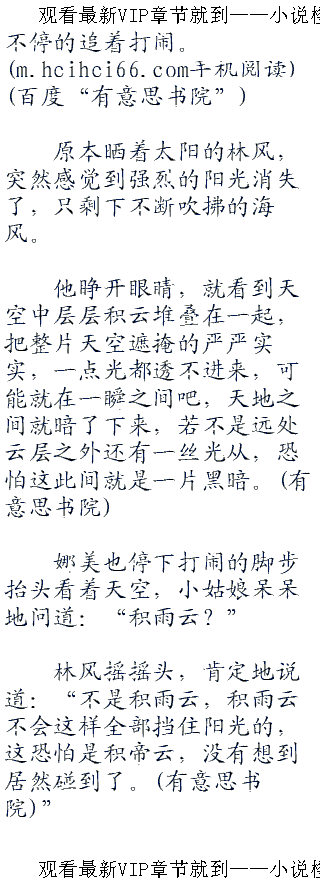 观看最新VIP章节就到——小说楼
不停的追着打闹。
(m.hcihci66.com手机阅读)
(百度“有意思书院”)
原本晒着太阳的林风，
突然感觉到强烈的阳光消失
了，只剩下不断吹拂的海
风。
他睁开眼睛，就看到天
空中层层积云堆叠在一起，
把整片天空遮掩的严严实
实，一点光都透不进来，可
能就在一瞬之间吧，天地之
间就暗了下来，若不是远处
云层之外还有一丝光从，恐
怕这此间就是一片黑暗。(有
意思书院)
娜美也停下打闹的脚步
抬头看着天空，小姑娘呆呆
地问道：“积雨云？”
林风摇摇头，肯定地说
道：“不是积雨云，积雨云
不会这样全部挡住阳光的，
这恐怕是积帝云，没有想到
居然碰到了。(有意思书
院)”
观看最新VIP章节就到——小说楼